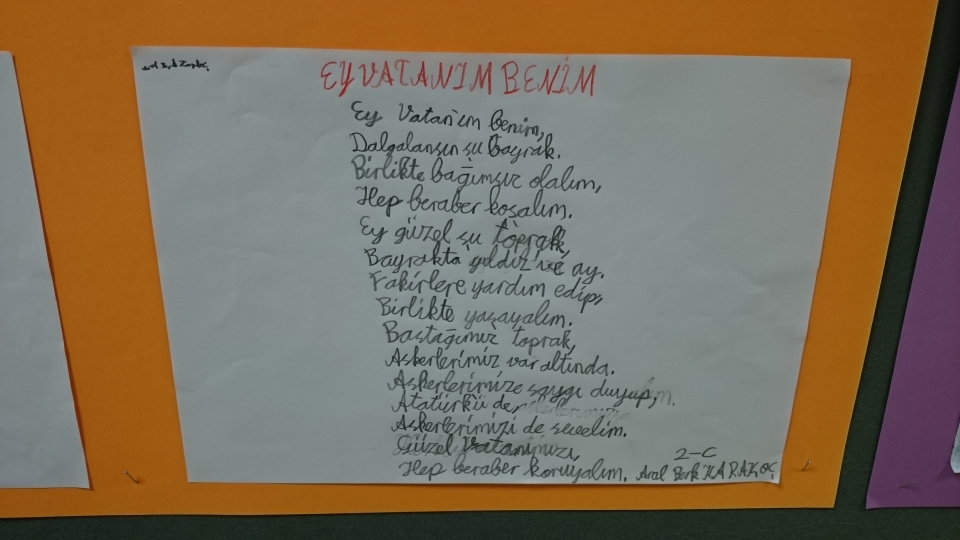 EY VATANIM BENİM
Ey Vatanım benim,
Dalgalansın şu bayrak.
Birlikte bağımsız olalım,
Hep beraber koşalım.
Ey güzel şu toprak,
Bayrakta yıldız ve ay.
Fakirlere yardım edip,
Birlikte yaşayalım.
Bastağımız toprak,
Askerlerimiz var altında.
Askerlerimize saygı duyup,
Atatürkü de
Askerlerimizi de sevelim.
Güzel Vatanımızı,
Hep beraber koruyalım.
2-C
Aral Berk KARAKOÇ